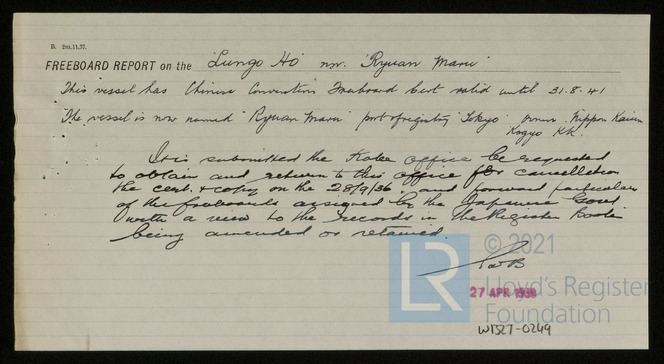 B. 2m.11.37.
FREEBOARD REPORT on the "Lungo Ho" now "Ryuan Maru"
This vessel has Chinese Convention Freeboard Cert valid until 31.8.41
The vessel is now named "Ryuan Maru" port of registry Tokyo owners Nippon Kaiun
Kogyo KK.
It is submitted the Kobe office be requested
to obtain and return to this office for cancellation
the cert. & copy on the 28/9/36 and forward particulars
of the freeboards assigned by the Japanese Govt
with a view to the records in the Register Book
being amended or retained.
27 APR 1938
LR
© 2021
Lloyd's Register
Foundation
W1327-0249